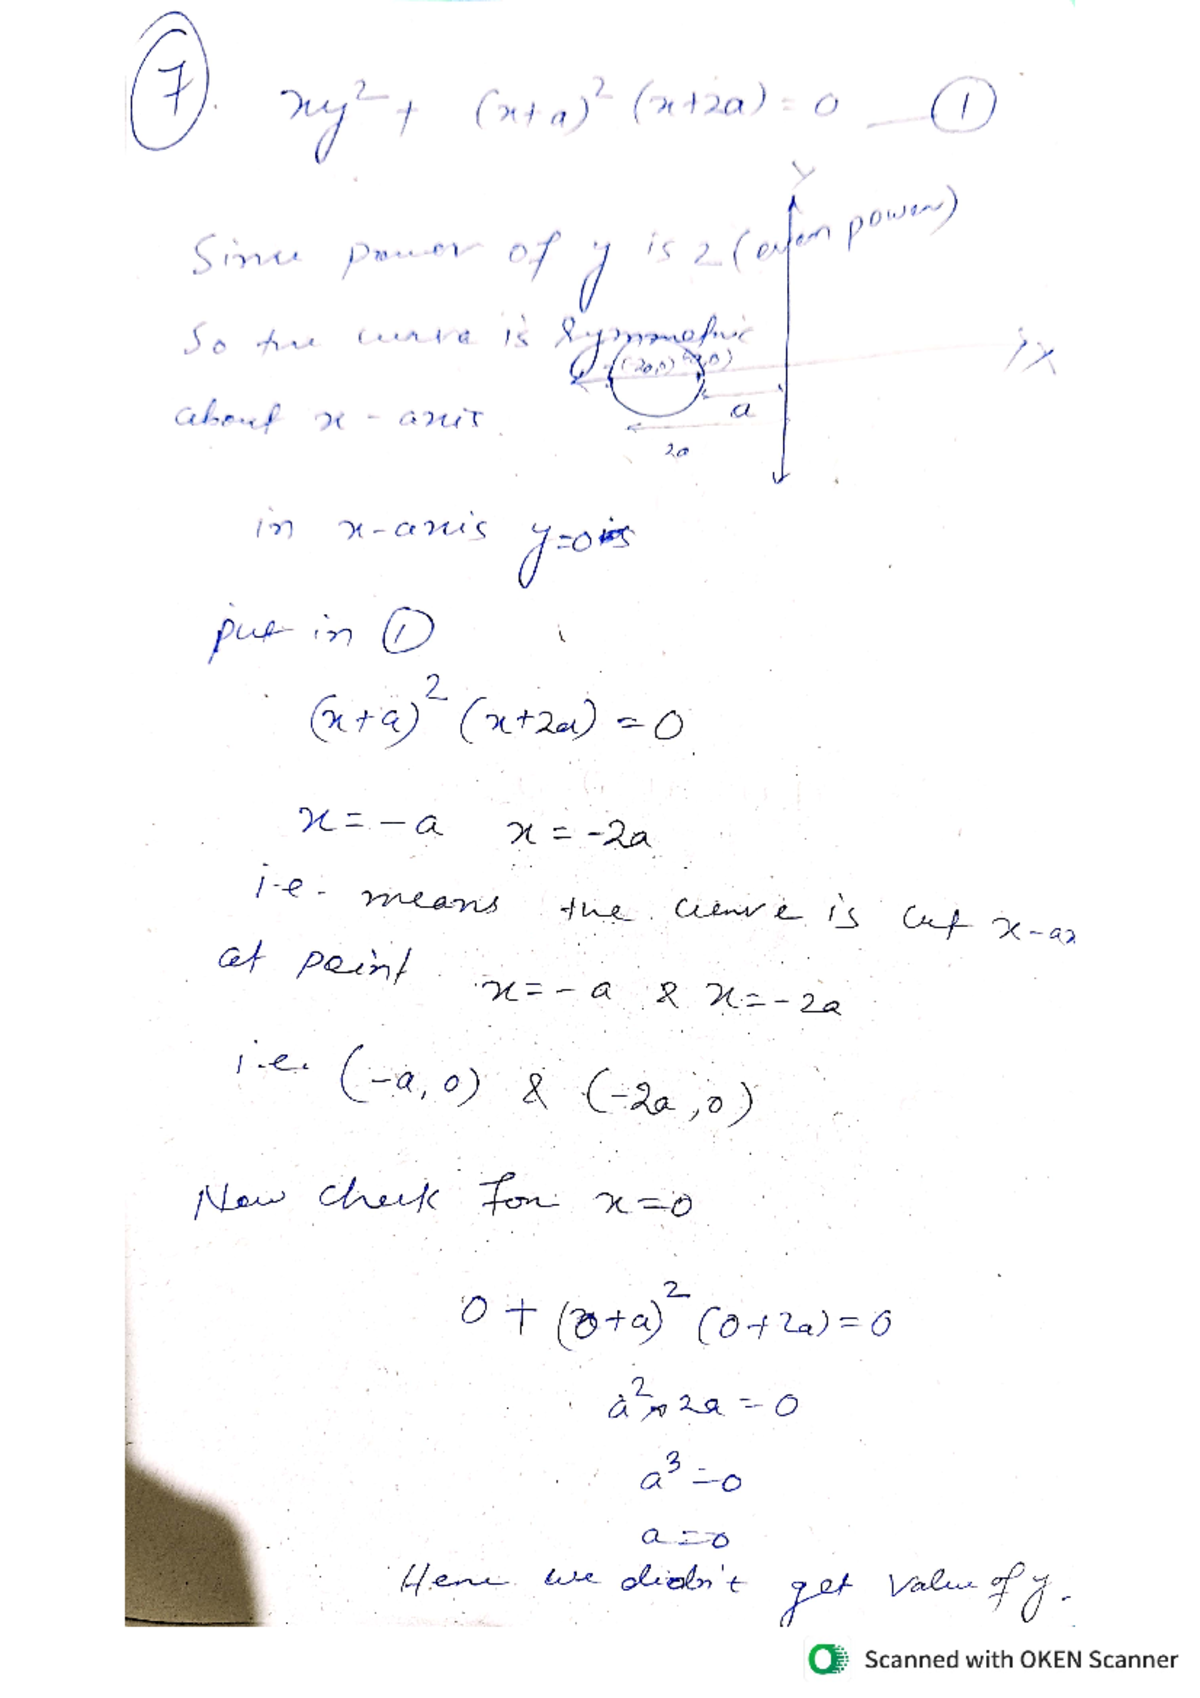 7. xy² + (x+a)² (x+2a) = 0 — ①
Y
Since power of y is 2 (even power)
So the curve is Symmetric
(-2a,0) (-a,0)
X
about x-axis.
a
2a
in x-axis y=0 is
put in ①
(x+a)² (x+2a) = 0
x = -a x = -2a
i.e. means the curve is cut x-ax
at point x = -a & x = -2a
i.e. (-a, 0) & (-2a, 0)
Now check for x=0
0 + (0+a)² (0+2a) = 0
a² × 2a = 0
a³ = 0
a = 0
Hence we didn't get value of y.
Scanned with OKEN Scanner